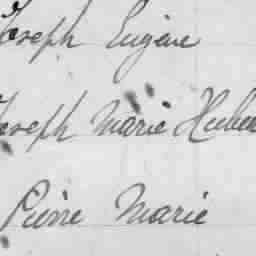 Joseph Eugène
Joseph Marie Huber
Pierre Marie